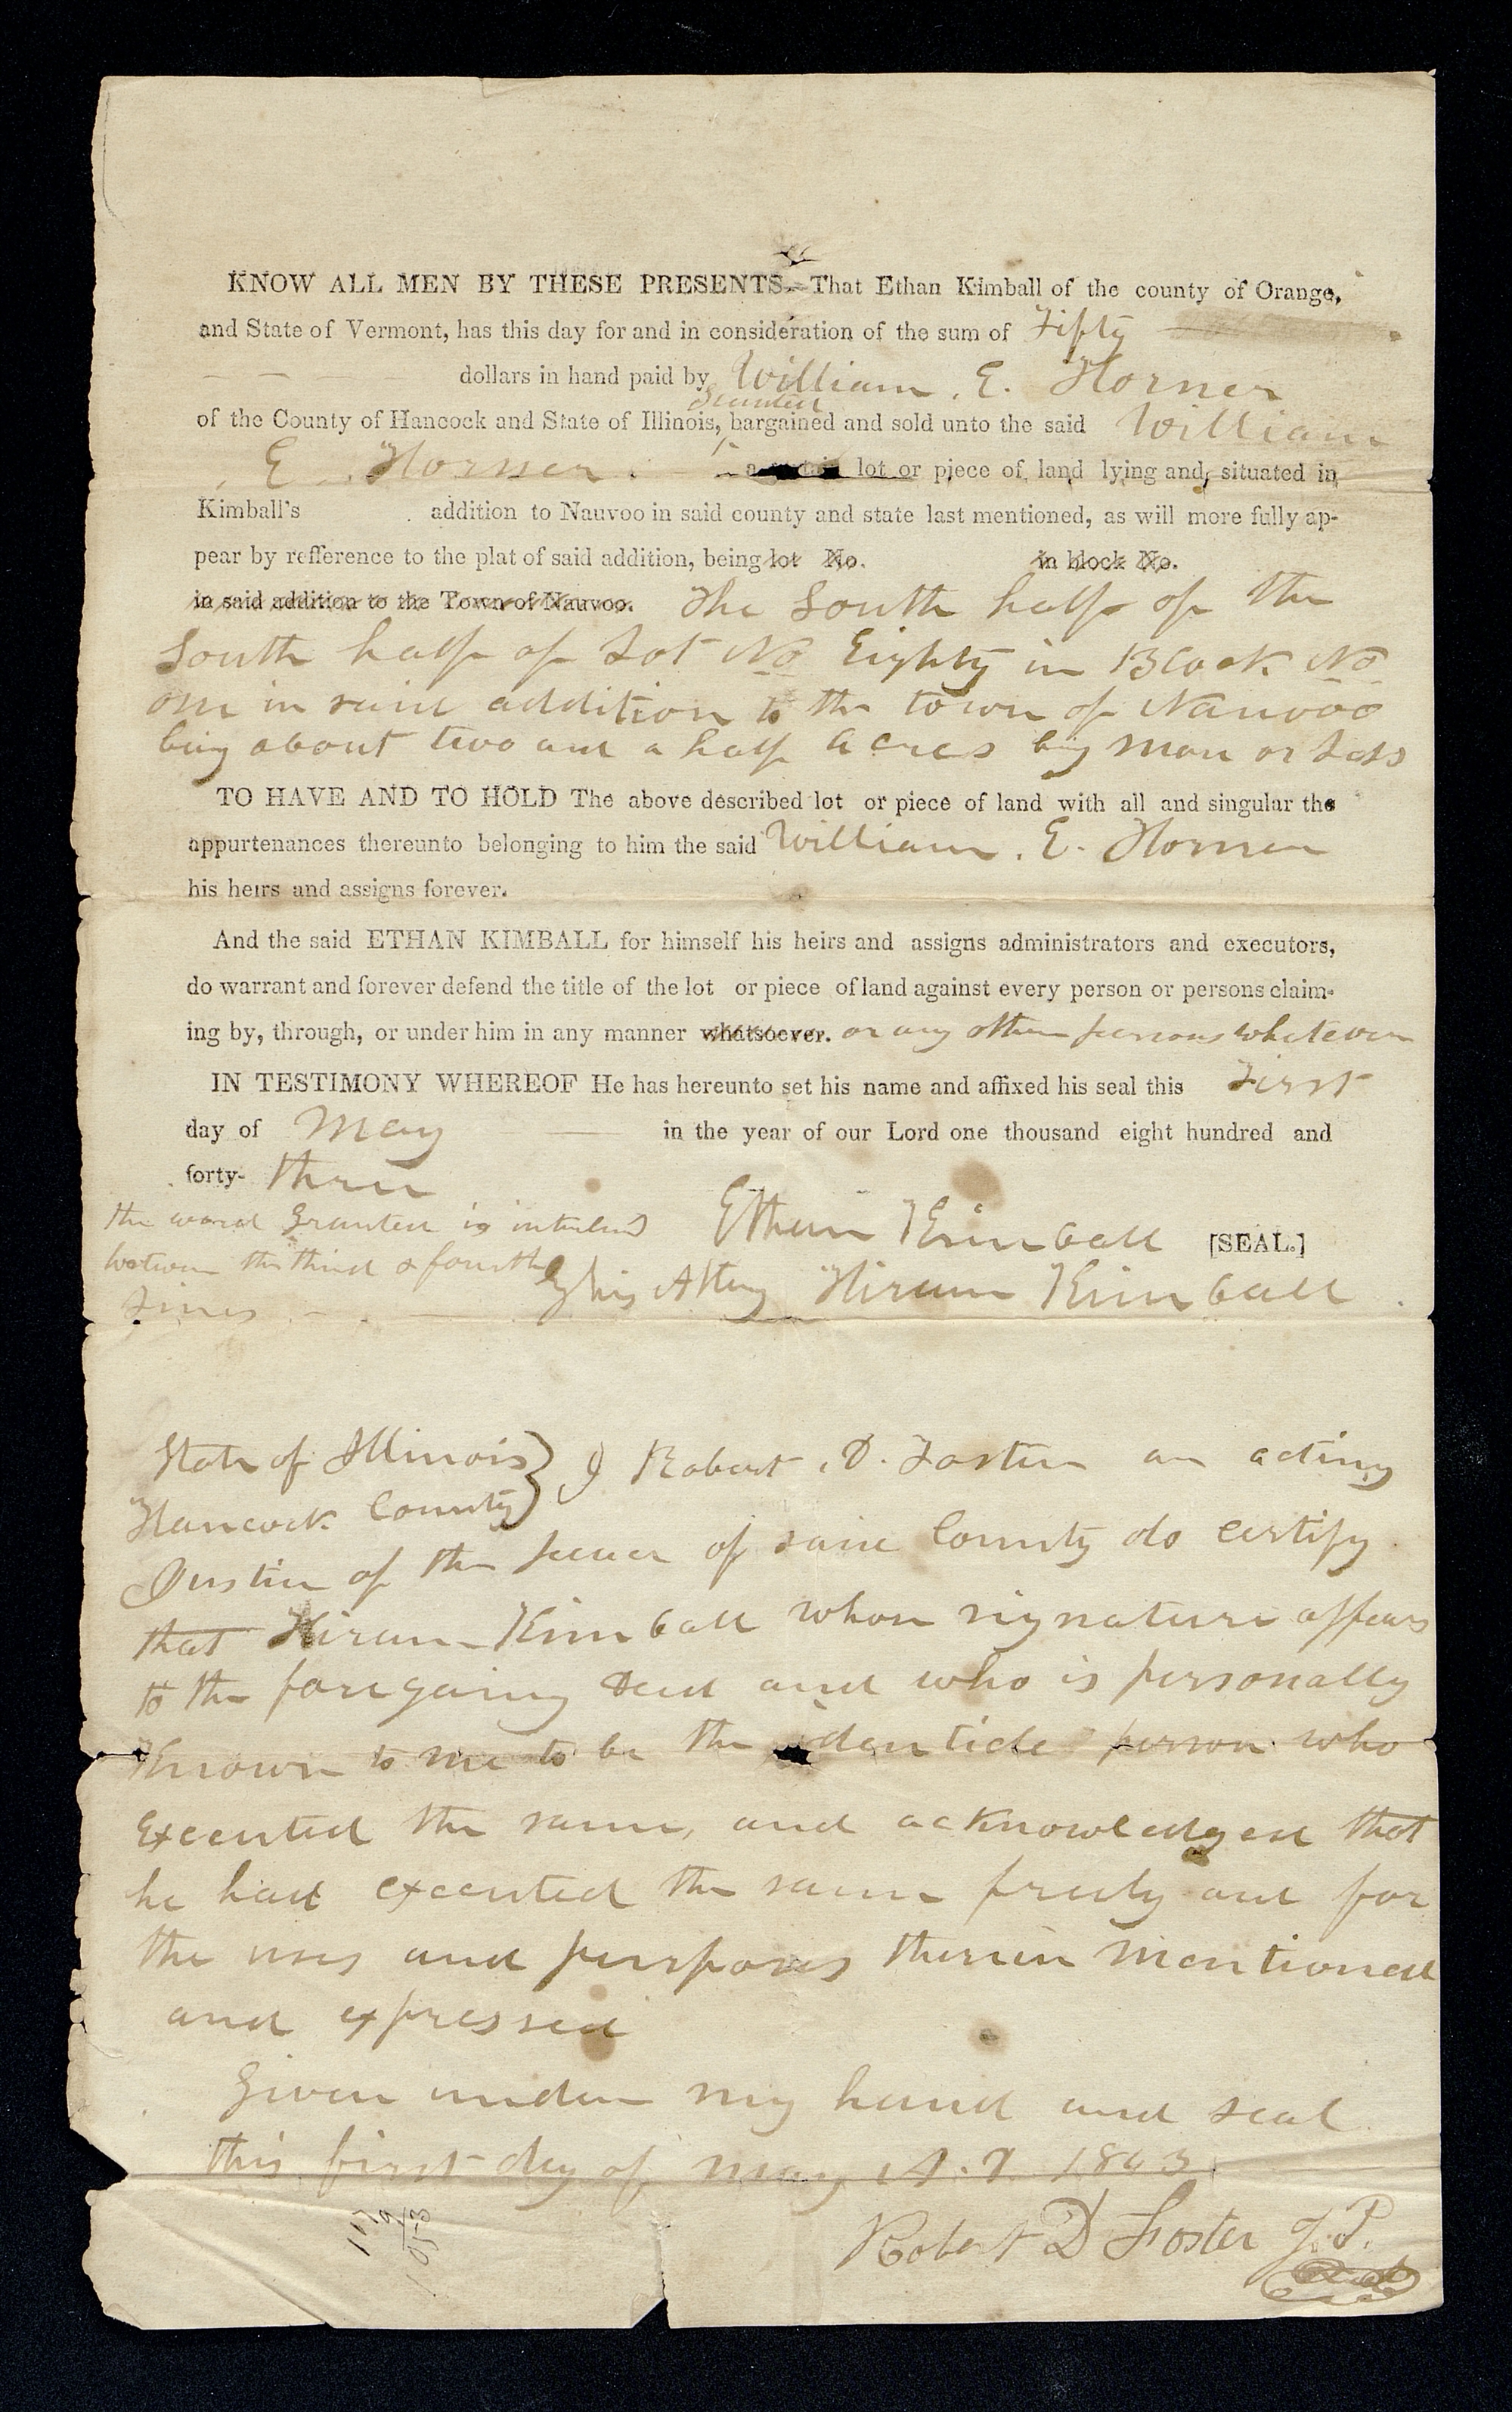 KNOW ALL MEN BY THESE PRESENTS.—That Ethan Kimball of the county of Orange,
and State of Vermont, has this day for and in consideration of the sum of Fifty
dollars in hand paid by William. E. Horner
Granted
of the County of Hancock and State of Illinois, bargained and sold unto the said William
E. Horner. a certain lot or piece of land lying and situated in
Kimball's addition to Nauvoo in said county and state last mentioned, as will more fully ap-
pear by refference to the plat of said addition, being lot No. in block No.
in said addition to the Town of Nauvoo. The South half of the
South half of Lot No Eighty in Block No
one in said addition to the town of Nauvoo
being about two and a half acres being more or Less
TO HAVE AND TO HOLD The above described lot or piece of land with all and singular the
appurtenances thereunto belonging to him the said William. E. Horner
his heirs and assigns forever.
And the said ETHAN KIMBALL for himself his heirs and assigns administrators and executors,
do warrant and forever defend the title of the lot or piece of land against every person or persons claim-
ing by, through, or under him in any manner whatsoever. or any other persons whatever
IN TESTIMONY WHEREOF He has hereunto set his name and affixed his seal this First
day of May in the year of our Lord one thousand eight hundred and
forty- three
the word Granted is interlined
between the third & fourth
Lines
Ethan Kimball [SEAL.]
by his Atty Hiram Kimball.
State of Illinois } I Robert. D. Foster an acting
Hancock County }
Justice of the peace of said County do certify
that Hiram Kimball whose signature appears
to the foregoing deed and who is personally
Known to me to be the identicle person who
Executed the same, and acknowledged that
he had executed the same freely and for
the uses and purposes therein mentioned
and expressed
Given under my hand and seal
this first day of May A.D. 1843.
Robert D Foster J.P.
Seal